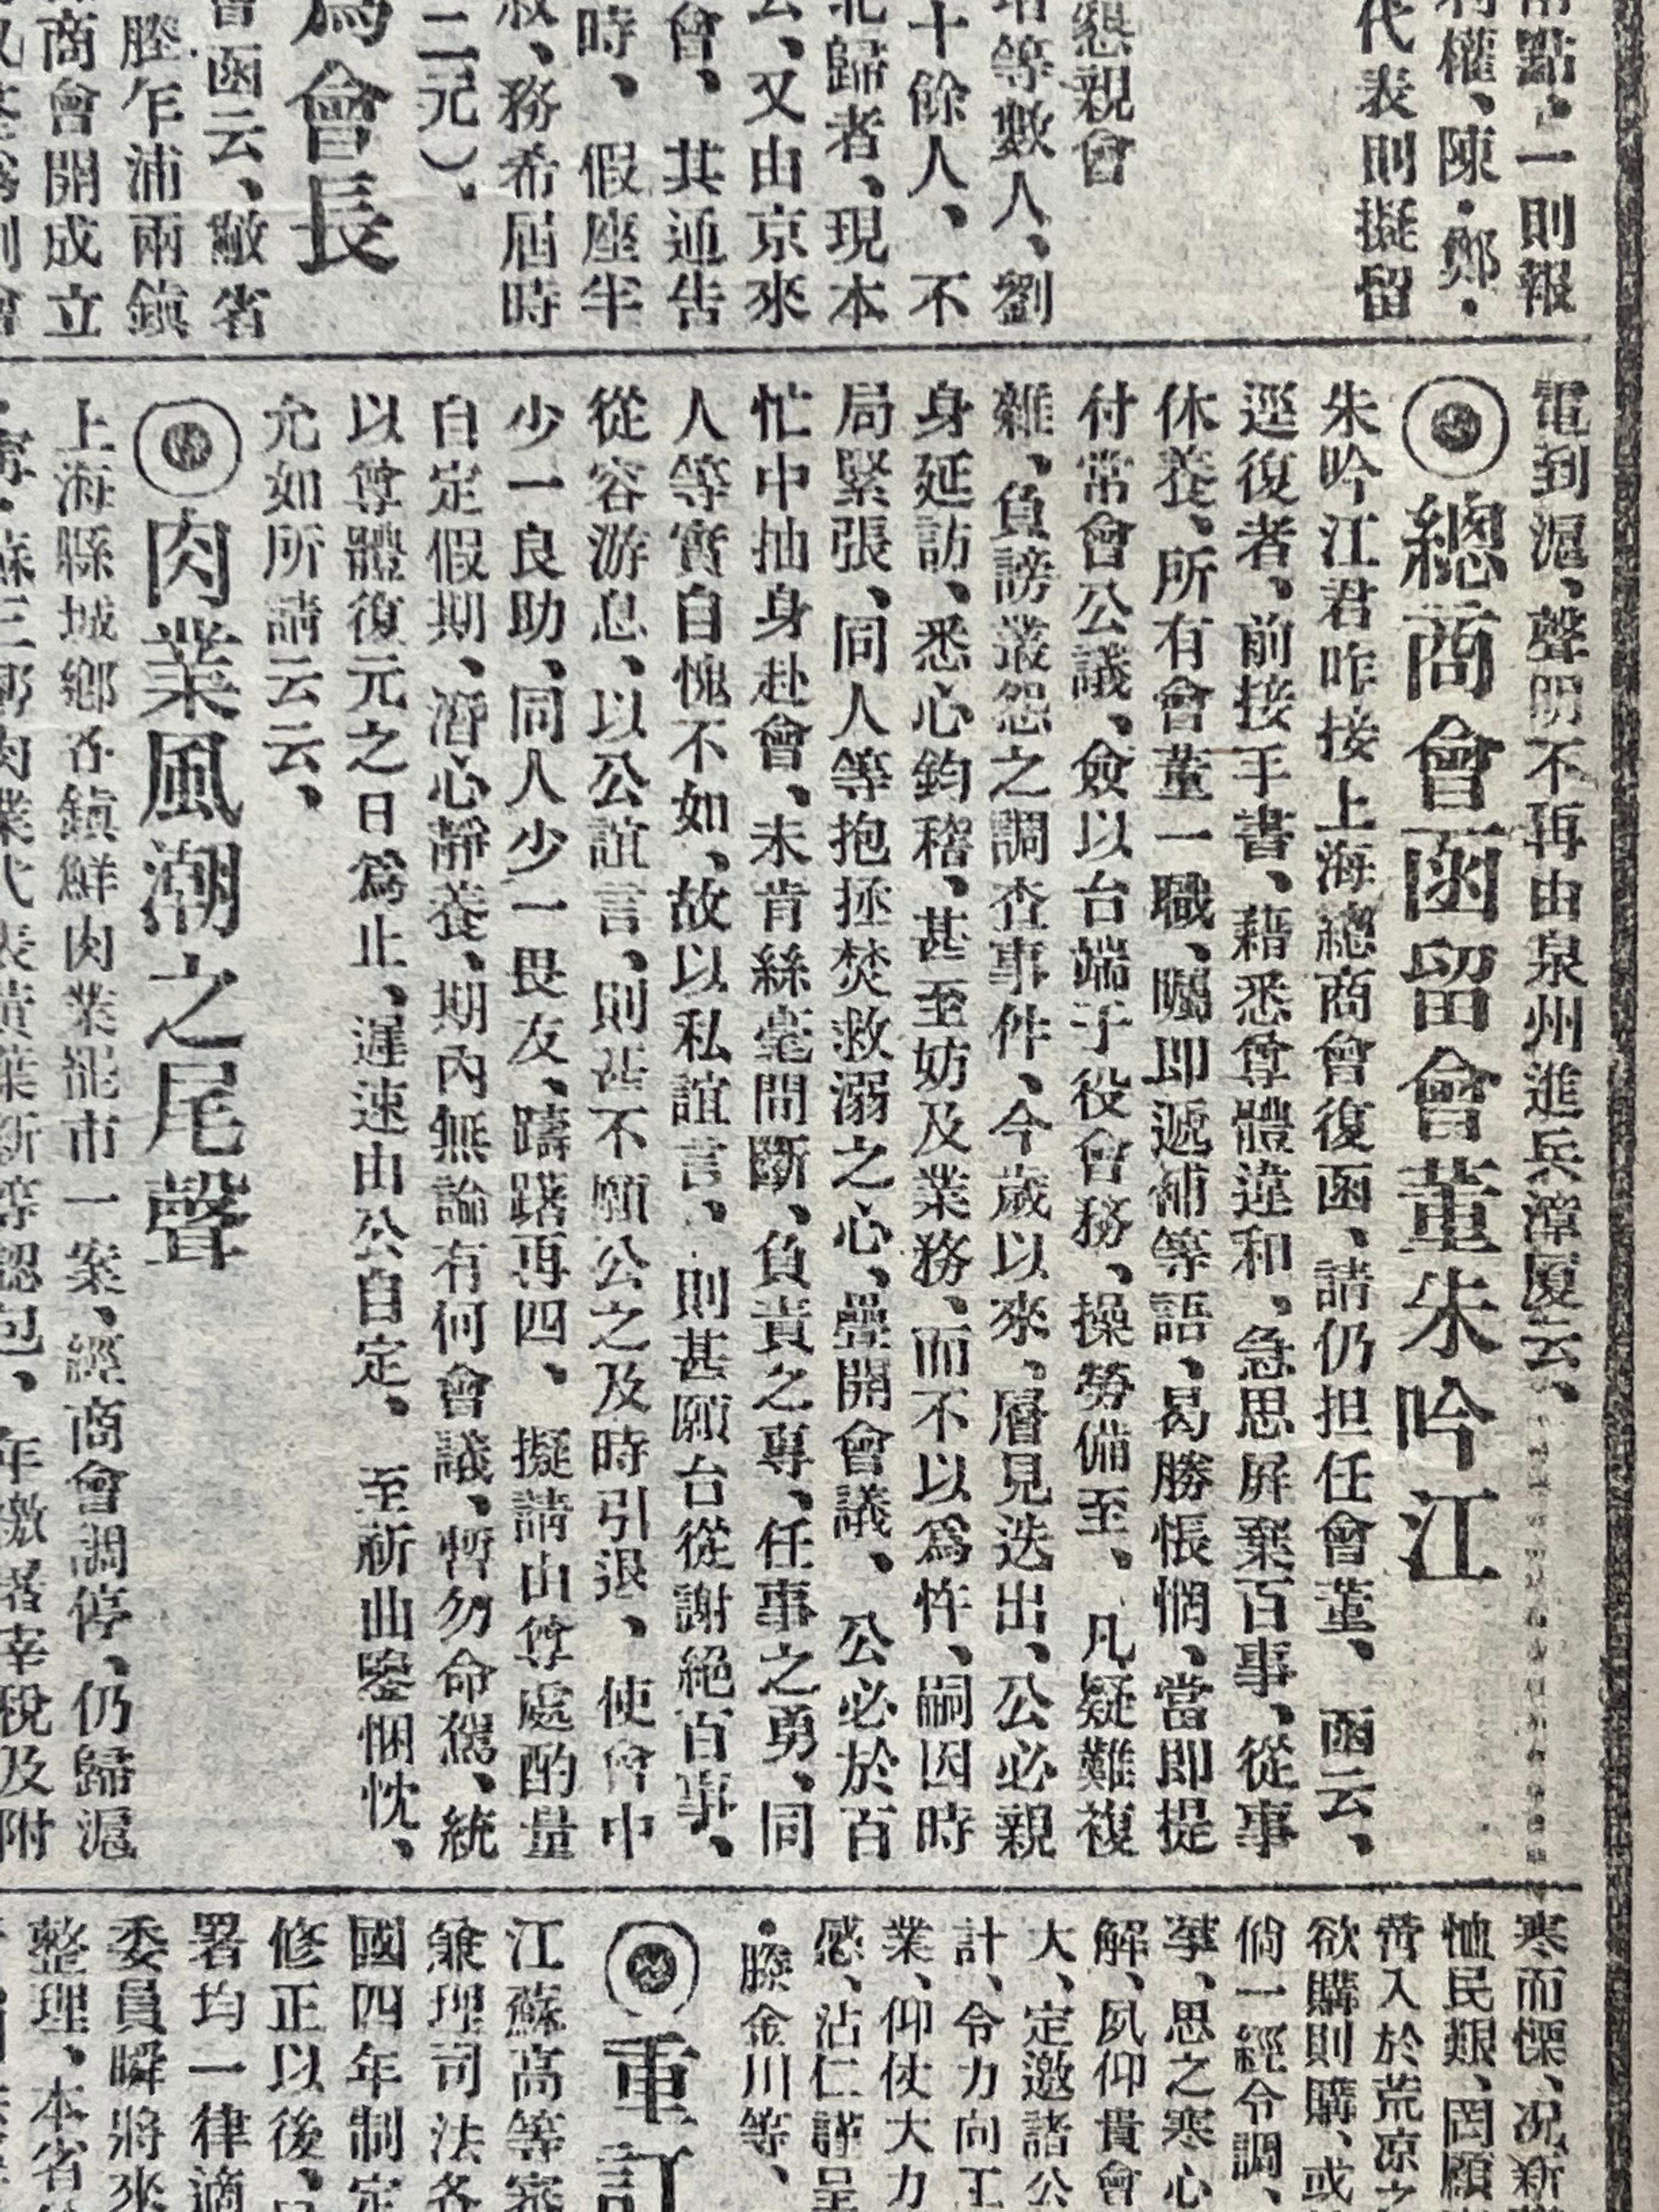 點、一則報
權、陳・鄭・
代表則擬留
懇親會
等數人、劉
十餘人、不
北歸者、現本
云、又由京來
會、其通告
時、假座半
敍、務希屆時
二元)、
爲會長
會函云、敝省
乍浦兩鎮
商會開成立
電到滬、聲明不再由泉州進兵漳厦云、
◉總商會函留會董朱吟江
朱吟江君昨接上海總商會復函、請仍担任會董、函云、
逕復者、前接手書、藉悉尊體違和、急思屏棄百事、從事
休養、所有會董一職、囑即遞補等語、曷勝悵惘、當即提
付常會公議、僉以台端于役會務、操勞備至、凡疑難複
雜、負謗叢怨之調查事件、今歲以來、層見迭出、公必親
身延訪、悉心鈎稽、甚至妨及業務、而不以爲忤、嗣因時
局緊張、同人等抱拯焚救溺之心、疊開會議、公必於百
忙中抽身赴會、未肯絲毫間斷、負責之專、任事之勇、同
人等實自愧不如、故以私誼言、則甚願台從謝絕百事、
從容游息、以公誼言、則甚不願公之及時引退、使會中
少一良助、同人少一畏友、躊躇再四、擬請由尊處酌量
自定假期、潛心靜養、期內無論有何會議、暫勿命駕、統
以尊體復元之日爲止、遲速由公自定、至祈曲鑒悃忱、
允如所請云云、
◉肉業風潮之尾聲
上海縣城鄉各鎮鮮肉業罷市一案、經商會調停、仍歸滬
寒而慄、况新
恤民艱、罔顧
營入於荒凉之
欲購則購、或
倘一經令調、
擧、思之寒心
解、夙仰貴會
大、定邀諸公
計、令力向
業、仰仗大力
感、沾仁謹呈
・滕金川等、
◉重訂
江蘇高等審
兼理司法各
國四年制定
修正以後、
署均一律適
委員瞬將來
整理、本省